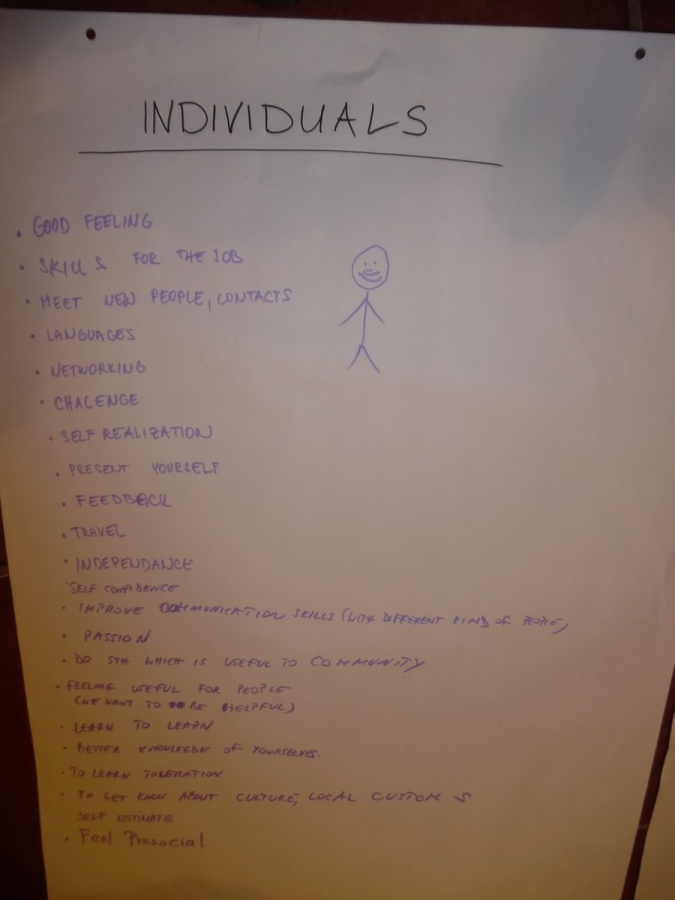 INDIVIDUALS
• GOOD FEELING
• SKILLS FOR THE JOB
• MEET NEW PEOPLE, CONTACTS
• LANGUAGES
• NETWORKING
• CHALENGE
• SELF REALIZATION
• PRESENT YOURSELF
• FEEDBACK
• TRAVEL
• INDEPENDANCE
• SELF CONFIDENCE
• IMPROVE COMMUNICATION SKILLS (WITH DIFFERENT KIND OF PEOPLE)
• PASSION
• DO STH WHICH IS USEFUL TO COMMUNITY
• FEELING USEFUL FOR PEOPLE
(WE WANT TO BE HELPFUL)
• LEARN TO LEARN
• BETTER KNOWLEDGE OF YOURSELVES.
• TO LEARN TOLERATION
• TO GET KNOW ABOUT CULTURE, LOCAL CUSTOMS
SELF ESTIMATE
• Feel Prosocial